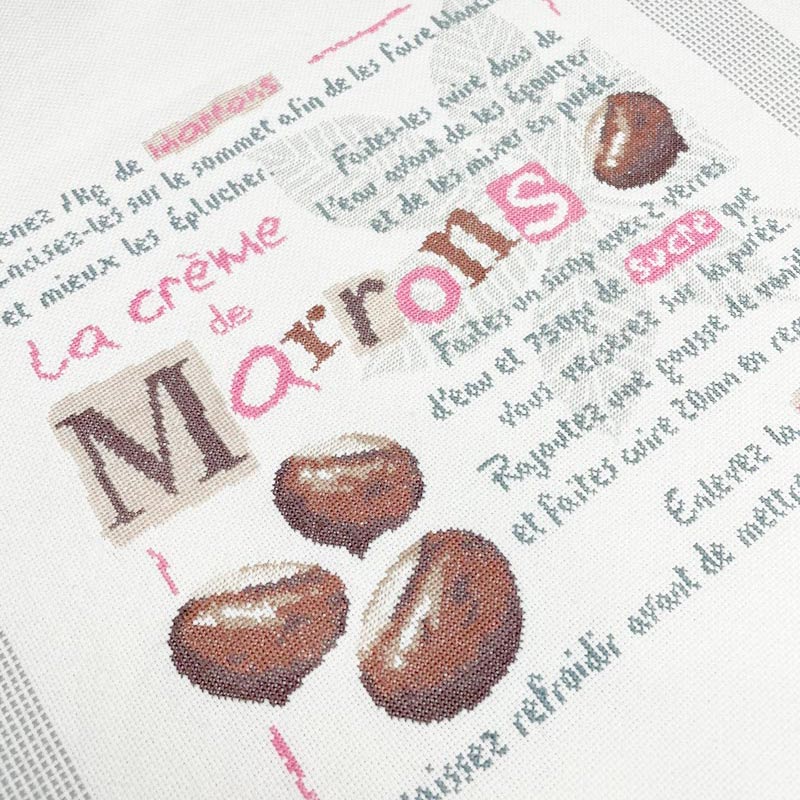 1kg de Marrons
incisez-les sur le sommet afin de les faire
et mieux les éplucher.
Faites-les cuire dans de
l'eau avant de les égoutter
et de les mixer en purée.
La crème
de
Marrons
Faites un sirop avec 2 verres
d'eau et 750gr de sucre que
vous verserez sur la purée.
Rajoutez une gousse de
et faites cuire 20mn en
Enlevez la
refroidir avant de